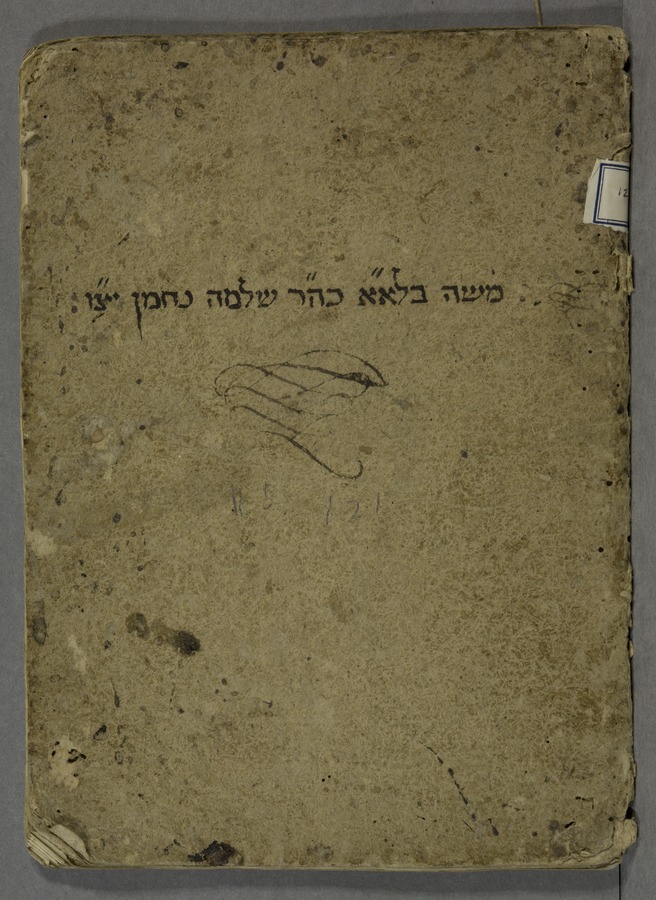 משה בלא״א כה״ר שלמה נחמן יצ״ו
121
12